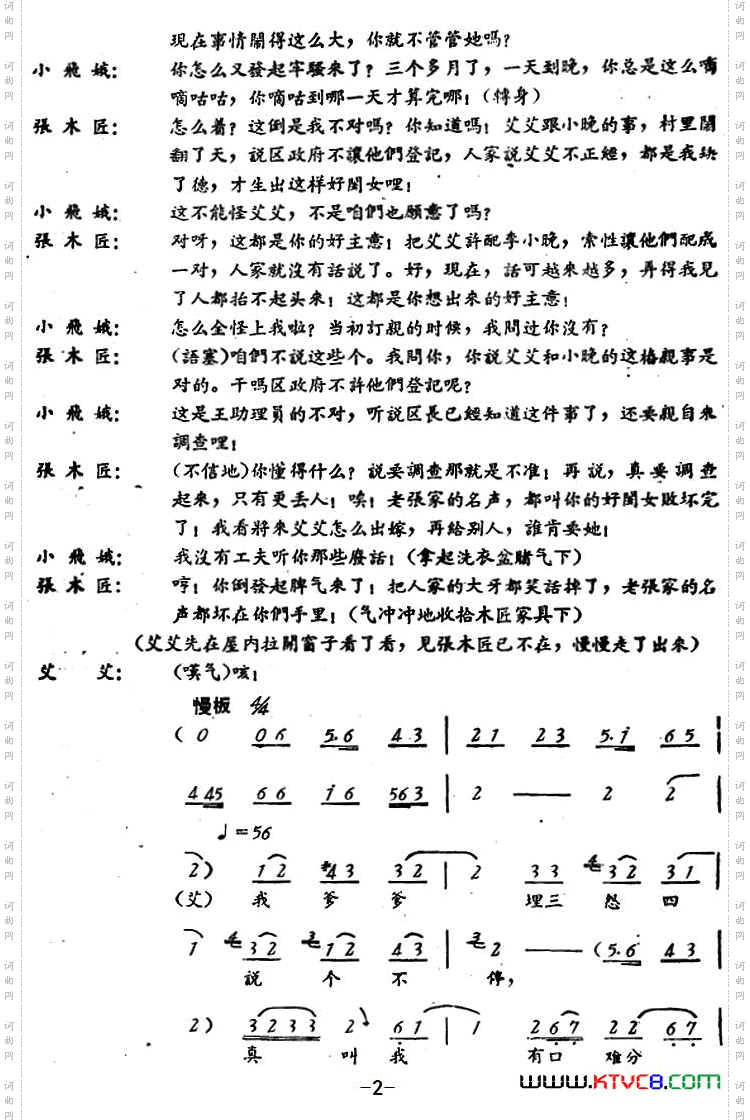 现在事情鬧得这么大，你就不管管她嗎？
小飛娥： 你怎么又發起牢騷来了？三个多月了，一天到晚，你总是这么嘀
嘀咕咕，你嘀咕到哪一天才算完哪！（轉身）
張木匠： 怎么着？这倒是我不对嗎？你知道嗎！艾艾跟小晚的事，村里鬧
翻了天，説区政府不讓他們登記，人家説艾艾不正經，都是我缺
了德，才生出这样好閨女哩！
小飛娥： 这不能怪艾艾，不是咱們也願意了嗎？
張木匠： 对呀，这都是你的好主意！把艾艾許配李小晚，索性讓他們配成
一对，人家就沒有話説了。好，現在，話可越來越多，弄得我見
了人都抬不起头来！这都是你想出来的好主意！
小飛娥： 怎么全怪上我啦？当初訂親的时候，我問过你沒有？
張木匠： （語塞）咱們不説这些个。我問你，你説艾艾和小晚的这樁親事是
对的。干嗎区政府不許他們登記呢？
小飛娥： 这是王助理員的不对，听説区長已經知道这件事了，还要親自来
調查哩！
張木匠： （不信地）你懂得什么？説要調查那就是不准！再説，真要調查
起来，只有更丢人！唉！老張家的名声，都叫你的好閨女敗坏完
了！我看將來艾艾怎么出嫁，再給别人，誰肯要她！
小飛娥： 我沒有工夫听你那些廢話！（拿起洗衣盆賭气下）
張木匠： 哼！你倒發起脾气来了！把人家的大牙都笑話掉了，老張家的名
声都坏在你們手里！（气冲冲地收拾木匠家具下）
（艾艾先在屋内拉開窗子看了看，見張木匠已不在，慢慢走了出来）
艾 艾： （嘆气）咳！
慢板 4/4
（0 06 5.6 43 | 21 23 5.i 65 |
445 66 i6 563 | 2 — 2 2 |
♩=56
2） 12 #43 32 | 2 33 32 31 |
（艾） 我 爹 爹 埋三 怨 四
1 32 12 43 | 2 — （5.6 43 |
説 个 不 停，
2） 3233 2 61 | 1 267 22 67 |
真 叫 我 有口 难分
-2-
www.KTVC8.com
词曲网